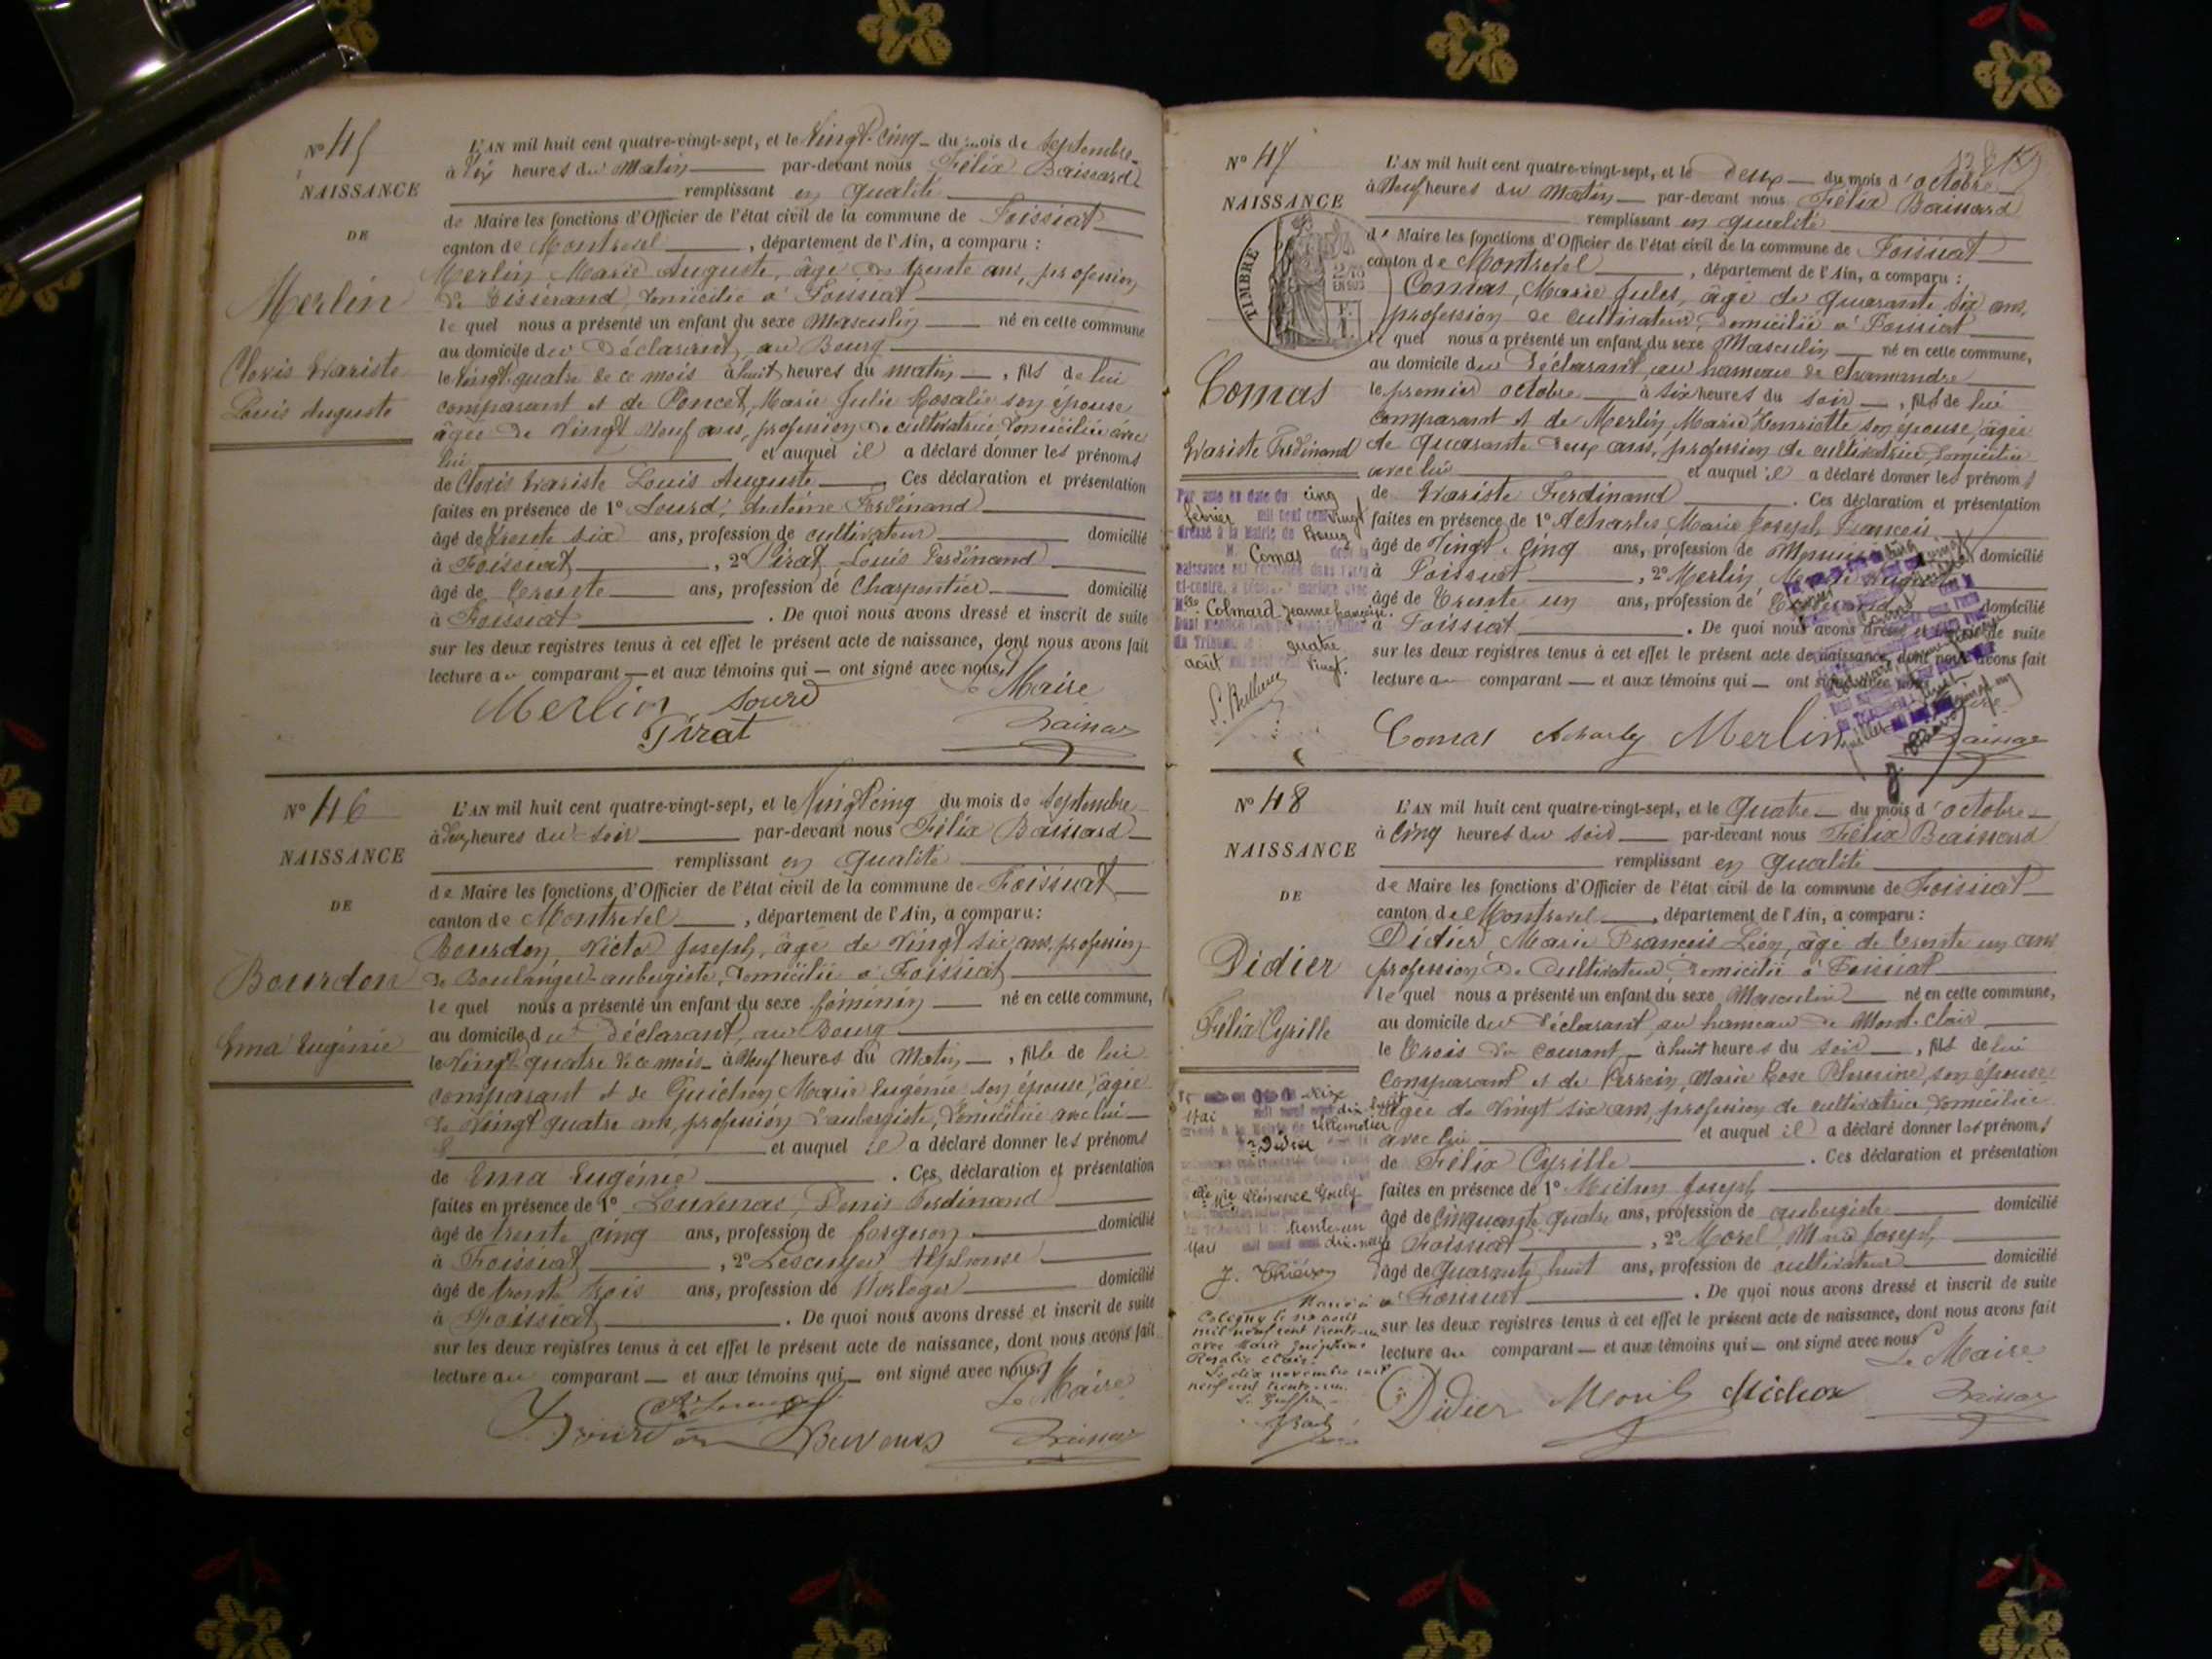 N° 45
NAISSANCE
DE
Merlin
Clovis Evariste
Louis Auguste
L'AN mil huit cent quatre-vingt-sept, et le Vingt-cinq du mois de Septembre
à Dix heures du Matin par-devant nous Félix Baissard
remplissant en qualité
de Maire les fonctions d'Officier de l'état civil de la commune de Foissiat
canton de Montrevel, département de l'Ain, a comparu :
Merlin Marie Auguste, âgé de trente ans, profession
de Tisserand, domicilié à Foissiat
lequel nous a présenté un enfant du sexe Masculin né en cette commune
au domicile du Déclarant, au Bourg
le vingt quatre de ce mois à huit heures du matin, fils de lui
comparant et de Poncet, Marie Julie Rosalie son épouse
âgée de Vingt Neuf ans, profession de cultivatrice, domiciliée avec
lui et auquel il a déclaré donner les prénoms
de Clovis Evariste Louis Auguste. Ces déclaration et présentation
faites en présence de 1° Sourd, Antoine Ferdinand
âgé de trente six ans, profession de cultivateur domicilié
à Foissiat, 2° Pirat Louis Ferdinand
âgé de trente ans, profession de Charpentier domicilié
à Foissiat. De quoi nous avons dressé et inscrit de suite
sur les deux registres tenus à cet effet le présent acte de naissance, dont nous avons fait
lecture au comparant — et aux témoins qui — ont signé avec nous
Le Maire
Merlin Sourd
Pirat
N° 46
NAISSANCE
DE
Bourdon
Ema Eugénie
L'AN mil huit cent quatre-vingt-sept, et le Vingt cinq du mois de Septembre
à deux heures du soir par-devant nous Félix Baissard
remplissant en qualité
de Maire les fonctions d'Officier de l'état civil de la commune de Foissiat
canton de Montrevel, département de l'Ain, a comparu :
Bourdon, Victor Joseph, âgé de Vingt six ans, profession
de Boulanger-aubergiste, domicilié à Foissiat
lequel nous a présenté un enfant du sexe féminin né en cette commune,
au domicile du Déclarant, au Bourg
le Vingt quatre de ce mois à Neuf heures du Matin, fille de lui
comparant et de Guichon Marie Eugénie son épouse, âgée
de Vingt quatre ans, profession d'aubergiste, domiciliée avec lui
et auquel il a déclaré donner les prénoms
de Ema Eugénie. Ces déclaration et présentation
faites en présence de 1° Denis Ferdinand
âgé de trente cinq ans, profession de forgeron domicilié
à Foissiat, 2° Lescuyer Alphonse
âgé de trente trois ans, profession de Horloger domicilié
à Foissiat. De quoi nous avons dressé et inscrit de suite
sur les deux registres tenus à cet effet le présent acte de naissance, dont nous avons fait
lecture au comparant — et aux témoins qui — ont signé avec nous
Le Maire
Bourdon
N° 47
NAISSANCE
TIMBRE
Comas
Evariste Ferdinand
Par acte en date du cinq
février mil neuf cent vingt
dressé à la Mairie de Bourg
M. Comas
Colmard Jeanne
quatre
août vingt.
L'AN mil huit cent quatre-vingt-sept, et le Deux du mois d'octobre
à Neuf heures du Matin par-devant nous Félix Baissard
remplissant en qualité
de Maire les fonctions d'Officier de l'état civil de la commune de Foissiat
canton de Montrevel, département de l'Ain, a comparu :
Comas, Marie Jules, âgé de quarante six ans,
profession de cultivateur, domicilié à Foissiat
lequel nous a présenté un enfant du sexe Masculin né en cette commune,
au domicile du Déclarant, au hameau de Chamandre
le premier octobre à six heures du soir, fils de lui
comparant et de Merlin Marie Henriette son épouse, âgée
de quarante deux ans, profession de cultivatrice, domiciliée
avec lui et auquel il a déclaré donner les prénoms
de Evariste Ferdinand. Ces déclaration et présentation
faites en présence de 1° Acharles, Marie Joseph François
âgé de Vingt-cinq ans, profession de domicilié
à Foissiat, 2° Merlin
âgé de trente un ans, profession de domicilié
à Foissiat. De quoi nous avons dressé et inscrit de suite
sur les deux registres tenus à cet effet le présent acte de naissance, dont nous avons fait
lecture au comparant — et aux témoins qui — ont signé avec nous
Comas Merlin
N° 48
NAISSANCE
DE
Didier
Félix Cyrille
L'AN mil huit cent quatre-vingt-sept, et le Quatre du mois d'octobre
à Cinq heures du soir par-devant nous Félix Baissard
remplissant en qualité
de Maire les fonctions d'Officier de l'état civil de la commune de Foissiat
canton de Montrevel, département de l'Ain, a comparu :
Didier Marie François Léon, âgé de trente un ans
profession de Cultivateur, domicilié à Foissiat
lequel nous a présenté un enfant du sexe Masculin né en cette commune,
au domicile du Déclarant, au hameau de Mont-clair
le trois du courant à huit heures du soir, fils de lui
comparant et de Perrin, Marie Rose son épouse
âgée de Vingt six ans, profession de cultivatrice, domiciliée
avec lui et auquel il a déclaré donner les prénoms
de Félix Cyrille. Ces déclaration et présentation
faites en présence de 1° Michon Joseph
âgé de cinquante quatre ans, profession de aubergiste domicilié
à Foissiat, 2° Morel, Marie Joseph
âgé de quarante huit ans, profession de cultivateur domicilié
à Foissiat. De quoi nous avons dressé et inscrit de suite
sur les deux registres tenus à cet effet le présent acte de naissance, dont nous avons fait
lecture au comparant — et aux témoins qui — ont signé avec nous
Le Maire
Didier Morel Michon